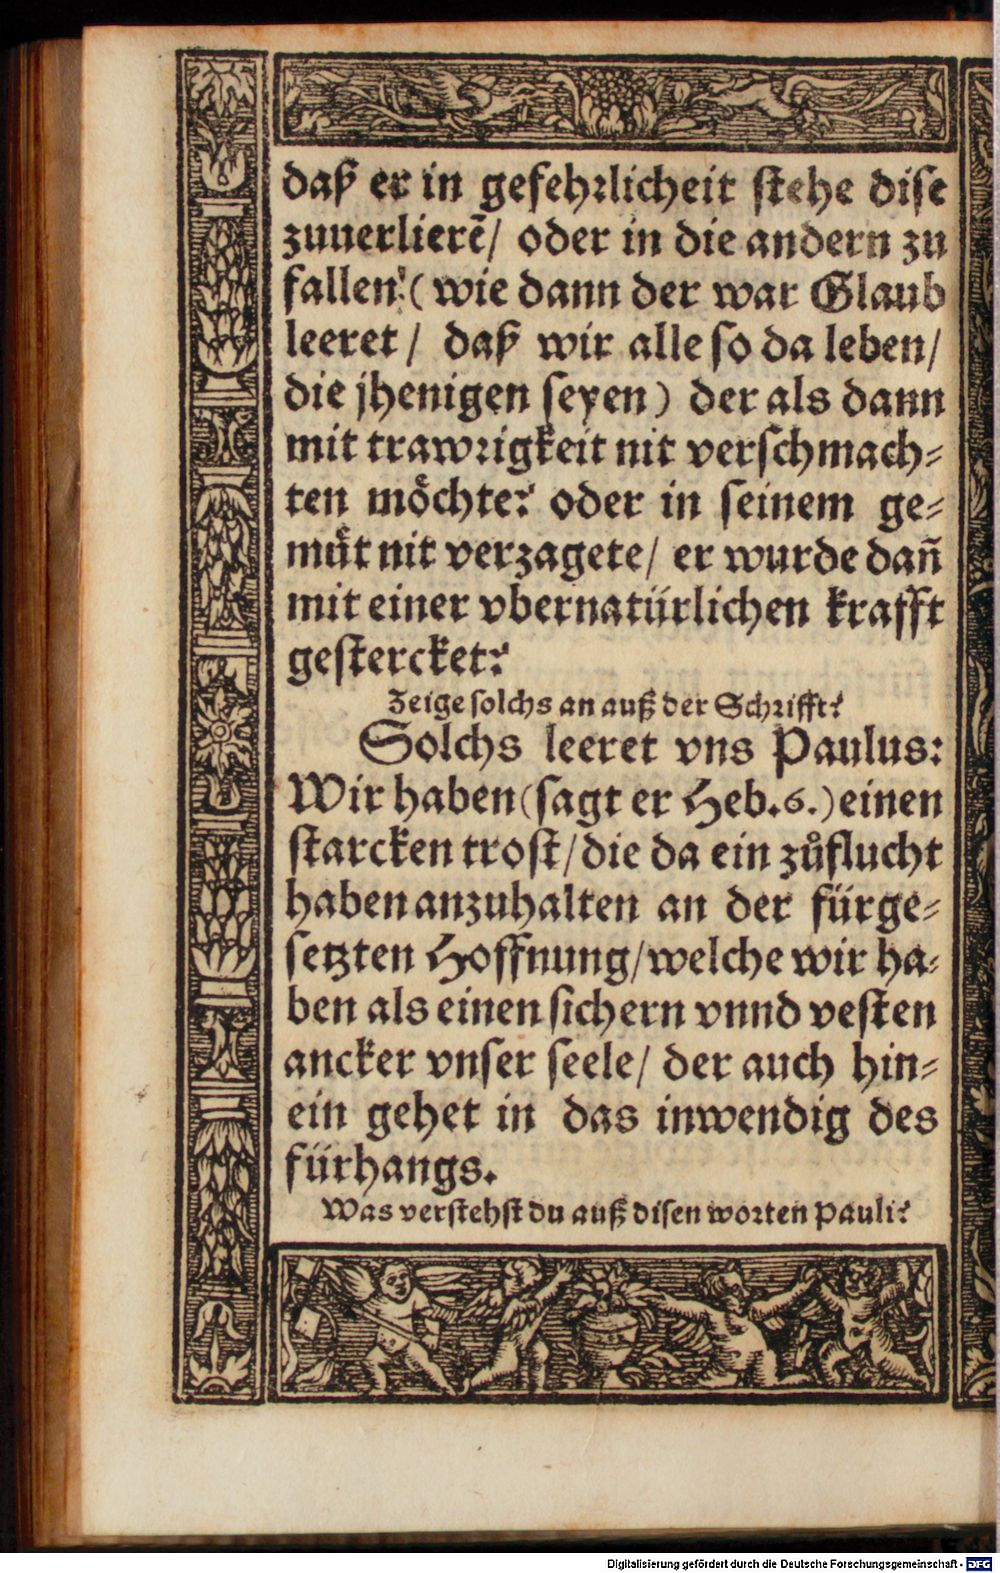 daß er in gefehrlicheit stehe dise
zuuerlierē/ oder in die andern zu
fallen?(wie dann der war Glaub
leeret/ daß wir alle so da leben/
die jhenigen seyen) der als dann
mit trawrigkeit nit verschmach-
ten möchte? oder in seinem ge-
müt nit verzagete/ er wurde dañ
mit einer vbernatürlichen krafft
gestercket?
Zeige solchs an auß der Schrifft?
Solchs leeret vns Paulus:
Wir haben(sagt er Heb.6.)einen
starcken trost/die da ein zůflucht
haben anzuhalten an der fürge-
setzten Hoffnung/welche wir ha-
ben als einen sichern vnnd vesten
ancker vnser seele/ der auch hin-
ein gehet in das inwendig des
fürhangs.
Was verstehst du auß disen worten Pauli?
Digitalisierung gefördert durch die Deutsche Forschungsgemeinschaft - DFG